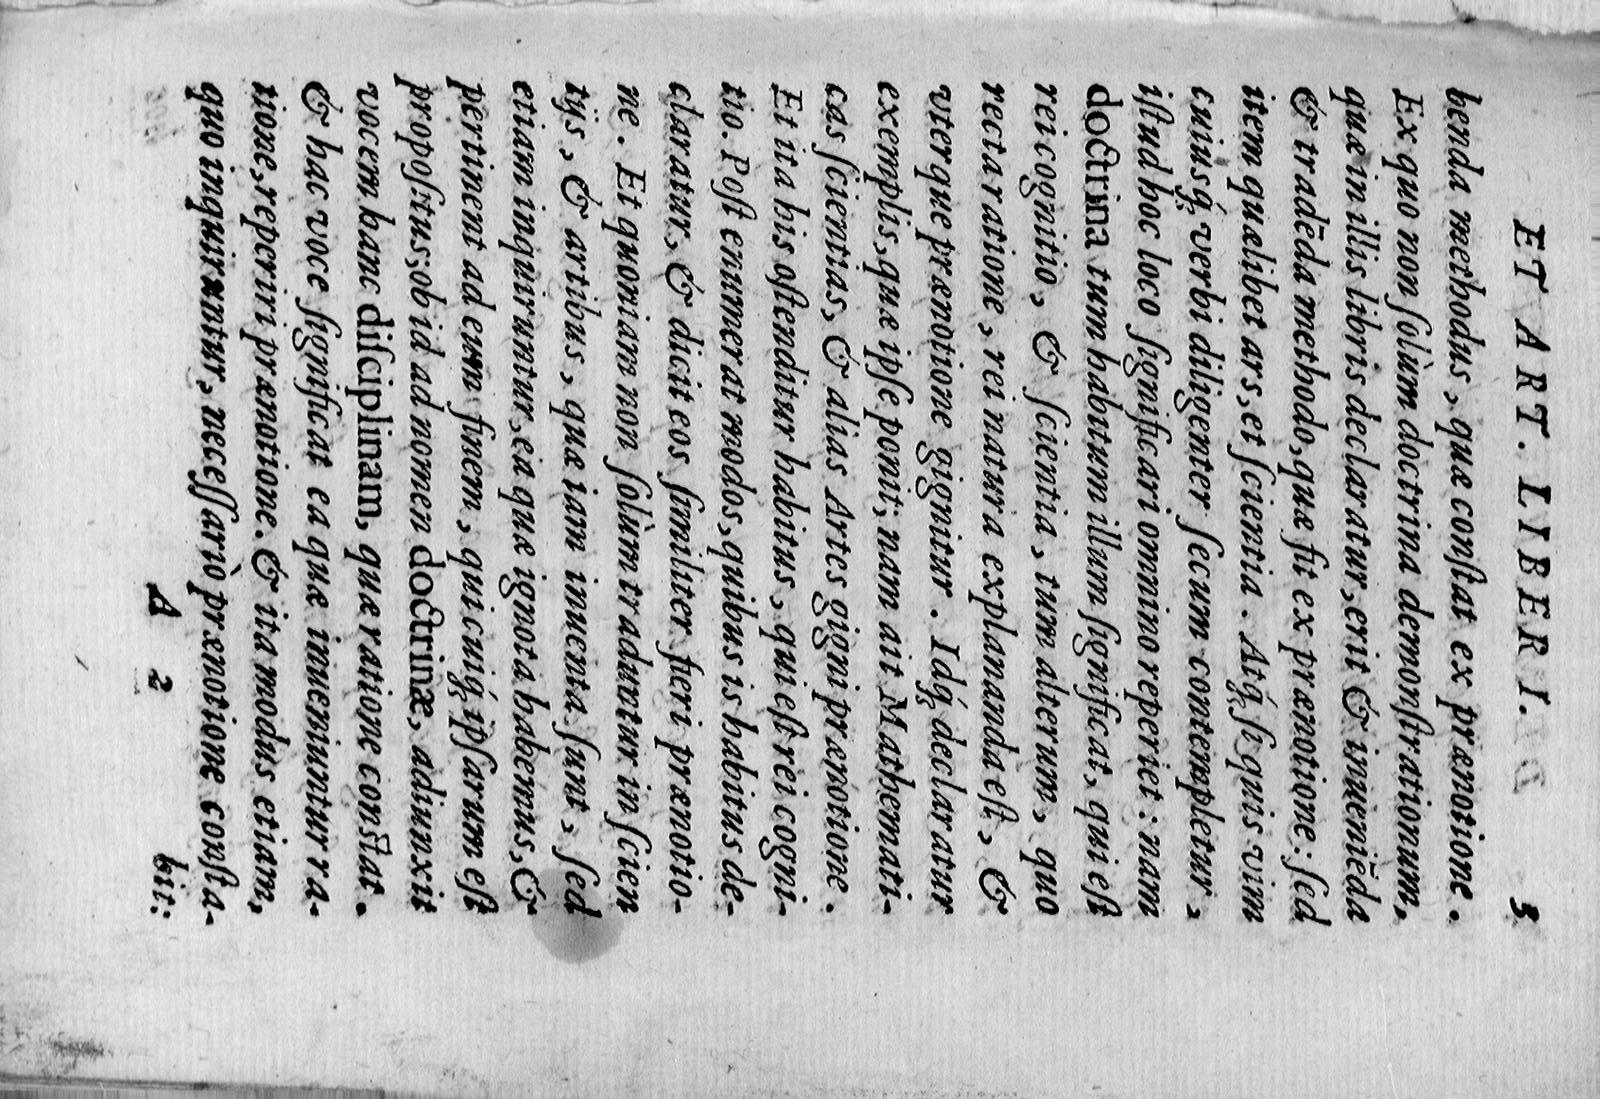 ET ART. LIBER I. 3
benda methodus, quæ conſtat ex prænotione.
Ex quo non ſolùm doctrina demonſtrationum,
quæ in illis libris declaratur, erit & inueniẽda
& tradẽda methodo, quæ fit ex prænotione: ſed
item quælibet ars, et ſcientia. Atq́; ſi quis vim
cuiusq́; verbi diligenter ſecum contempletur,
iſtud hoc loco ſignificari omnino reperiet: nam
doctrina tum habitum illum ſignificat, qui eſt
rei cognitio, & ſcientia, tum alterum, quo
recta ratione, rei natura explananda eſt, &
vterque prænotione gignitur. Idq́; declaratur
exemplis, quæ ipſe ponit; nam ait Mathemati-
cas ſcientias, & alias Artes gigni prænotione.
Et ita his oſtenditur habitus, qui eſt rei cogni-
tio. Poſt enumerat modos, quibus is habitus de-
claratur, & dicit eos ſimiliter fieri prænotio-
ne. Et quoniam non ſolùm traduntur in ſcien
tijs, & artibus, quæ iam inuenta ſunt, ſed
etiam inquiruntur, ea quæ ignota habemus, &
pertinent ad eum finem, qui cuiq́; ipſarum eſt
propoſitus; ob id ad nomen doctrinæ, adiunxit
vocem hanc diſciplinam, quæ ratione conſtat.
& hac voce ſignificat ea quæ inueniuntur ra-
tione, reperiri prænotione. & ita modus etiam,
quo inquiruntur, neceſſariò prænotione conſta-
A 2 bit: